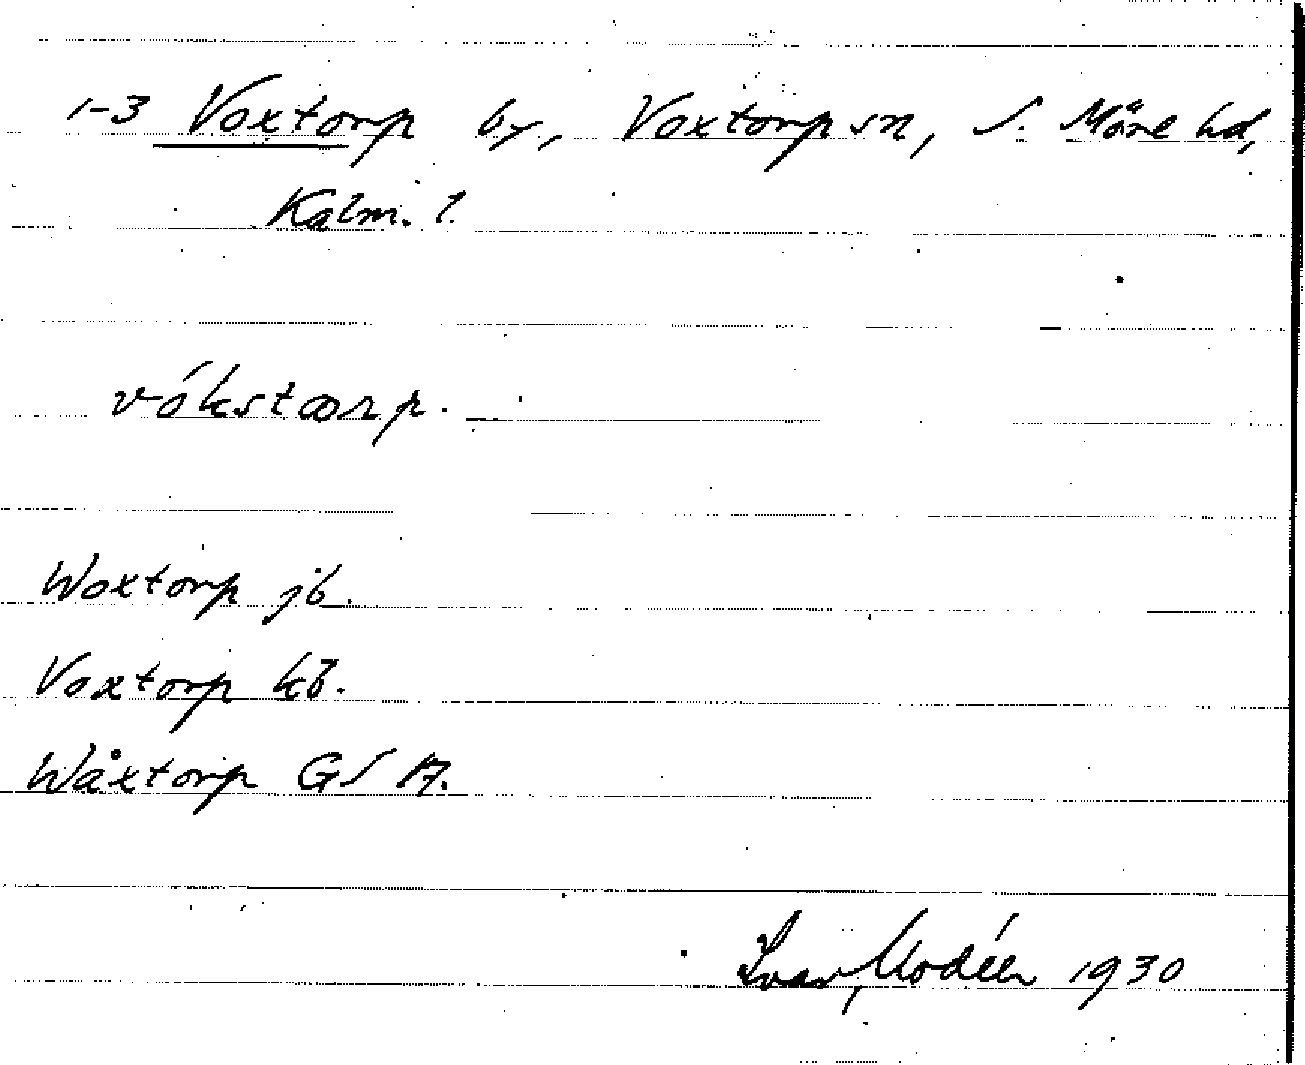 1-3 Voxtorp by, Voxtorp sn, S. Möre hd,
Kalm. l.
vókstærp.
Woxtorp jb.
Voxtorp kb.
Wåxtorp GSA.
Ivar Modéer 1930